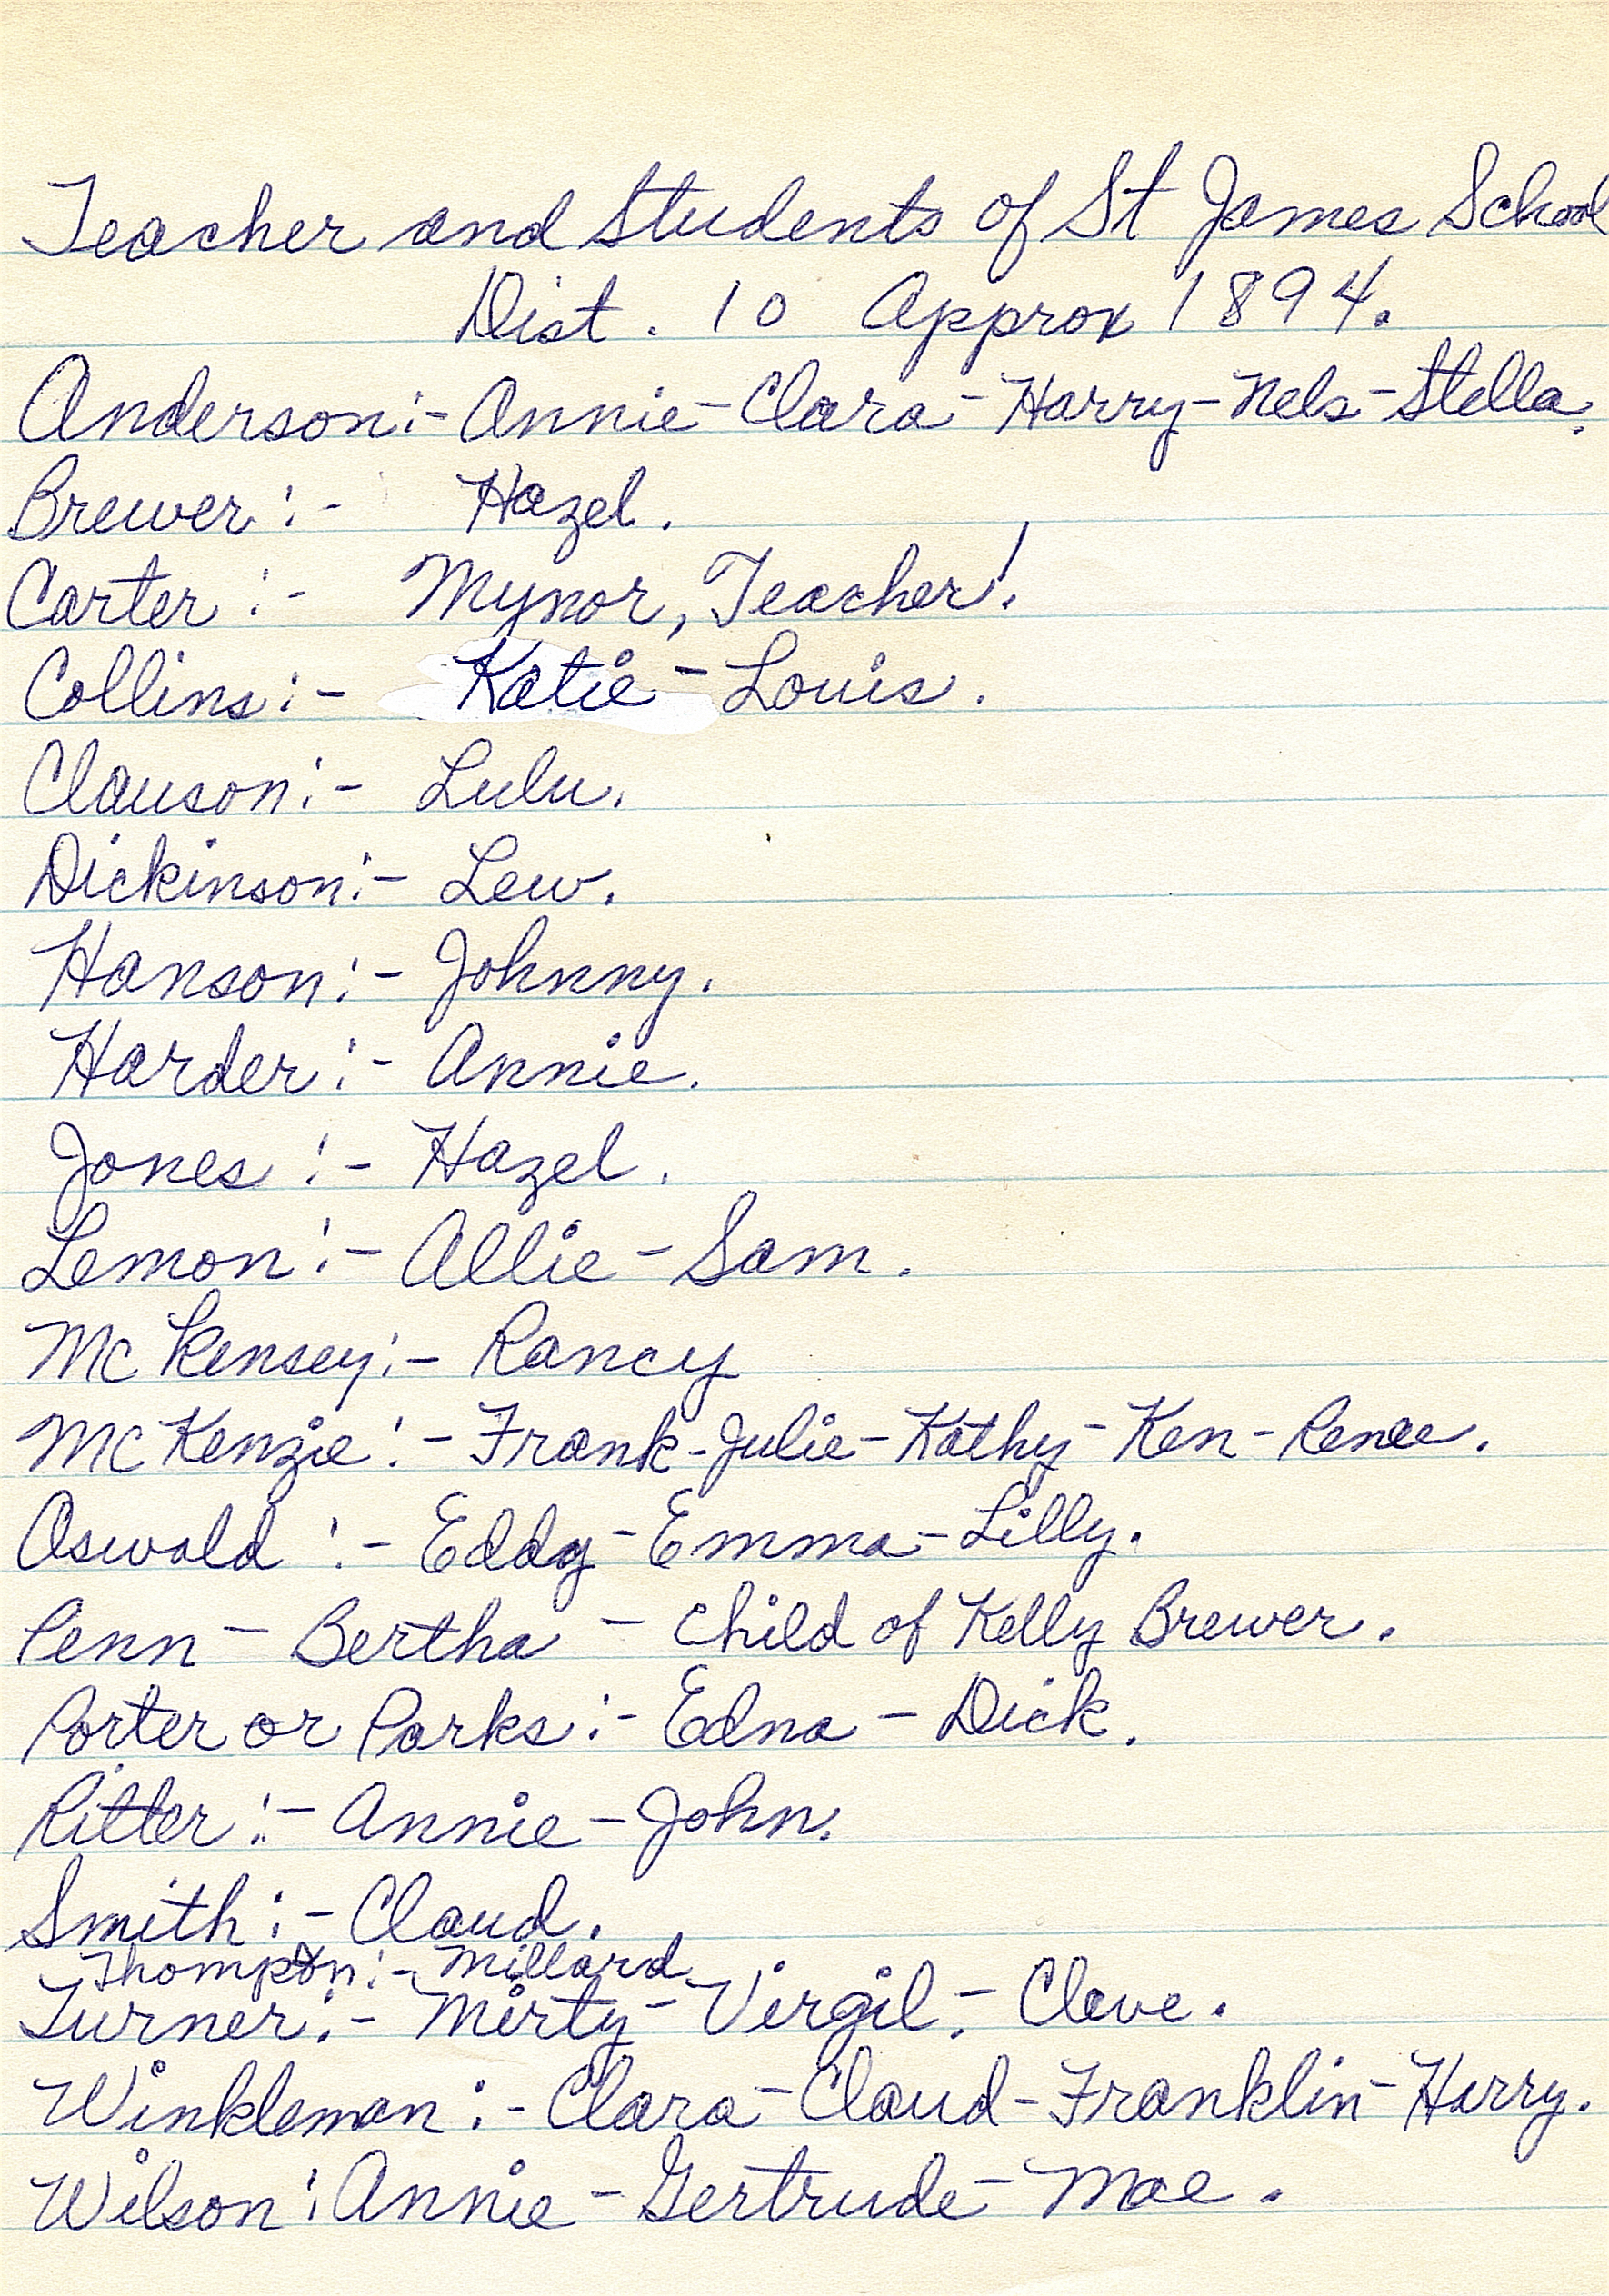 Teacher and Students of St James School
Dist. 10 Approx 1894.
Anderson:- Annie - Clara - Harry - Nels - Stella.
Brewer:- Hazel.
Carter:- Mynor, Teacher!
Collins:- Katie - Louis.
Clauson:- Lulu.
Dickinson:- Lew.
Hanson:- Johnny.
Harder:- Annie.
Jones:- Hazel.
Lemon:- Allie - Sam.
McKensey:- Rancy
McKenzie:- Frank - Julie - Kathy - Ken - Renee.
Oswald:- Eddy - Emma - Lilly.
Penn - Bertha - Child of Kelly Brewer.
Porter or Parks:- Edna - Dick.
Ritter:- Annie - John.
Smith:- Claud.
Thompson:- Millard
Turner:- Mirty - Virgil. - Cleve.
Winkleman:- Clara - Claud - Franklin - Harry.
Wilson: Annie - Gertrude - Mae.